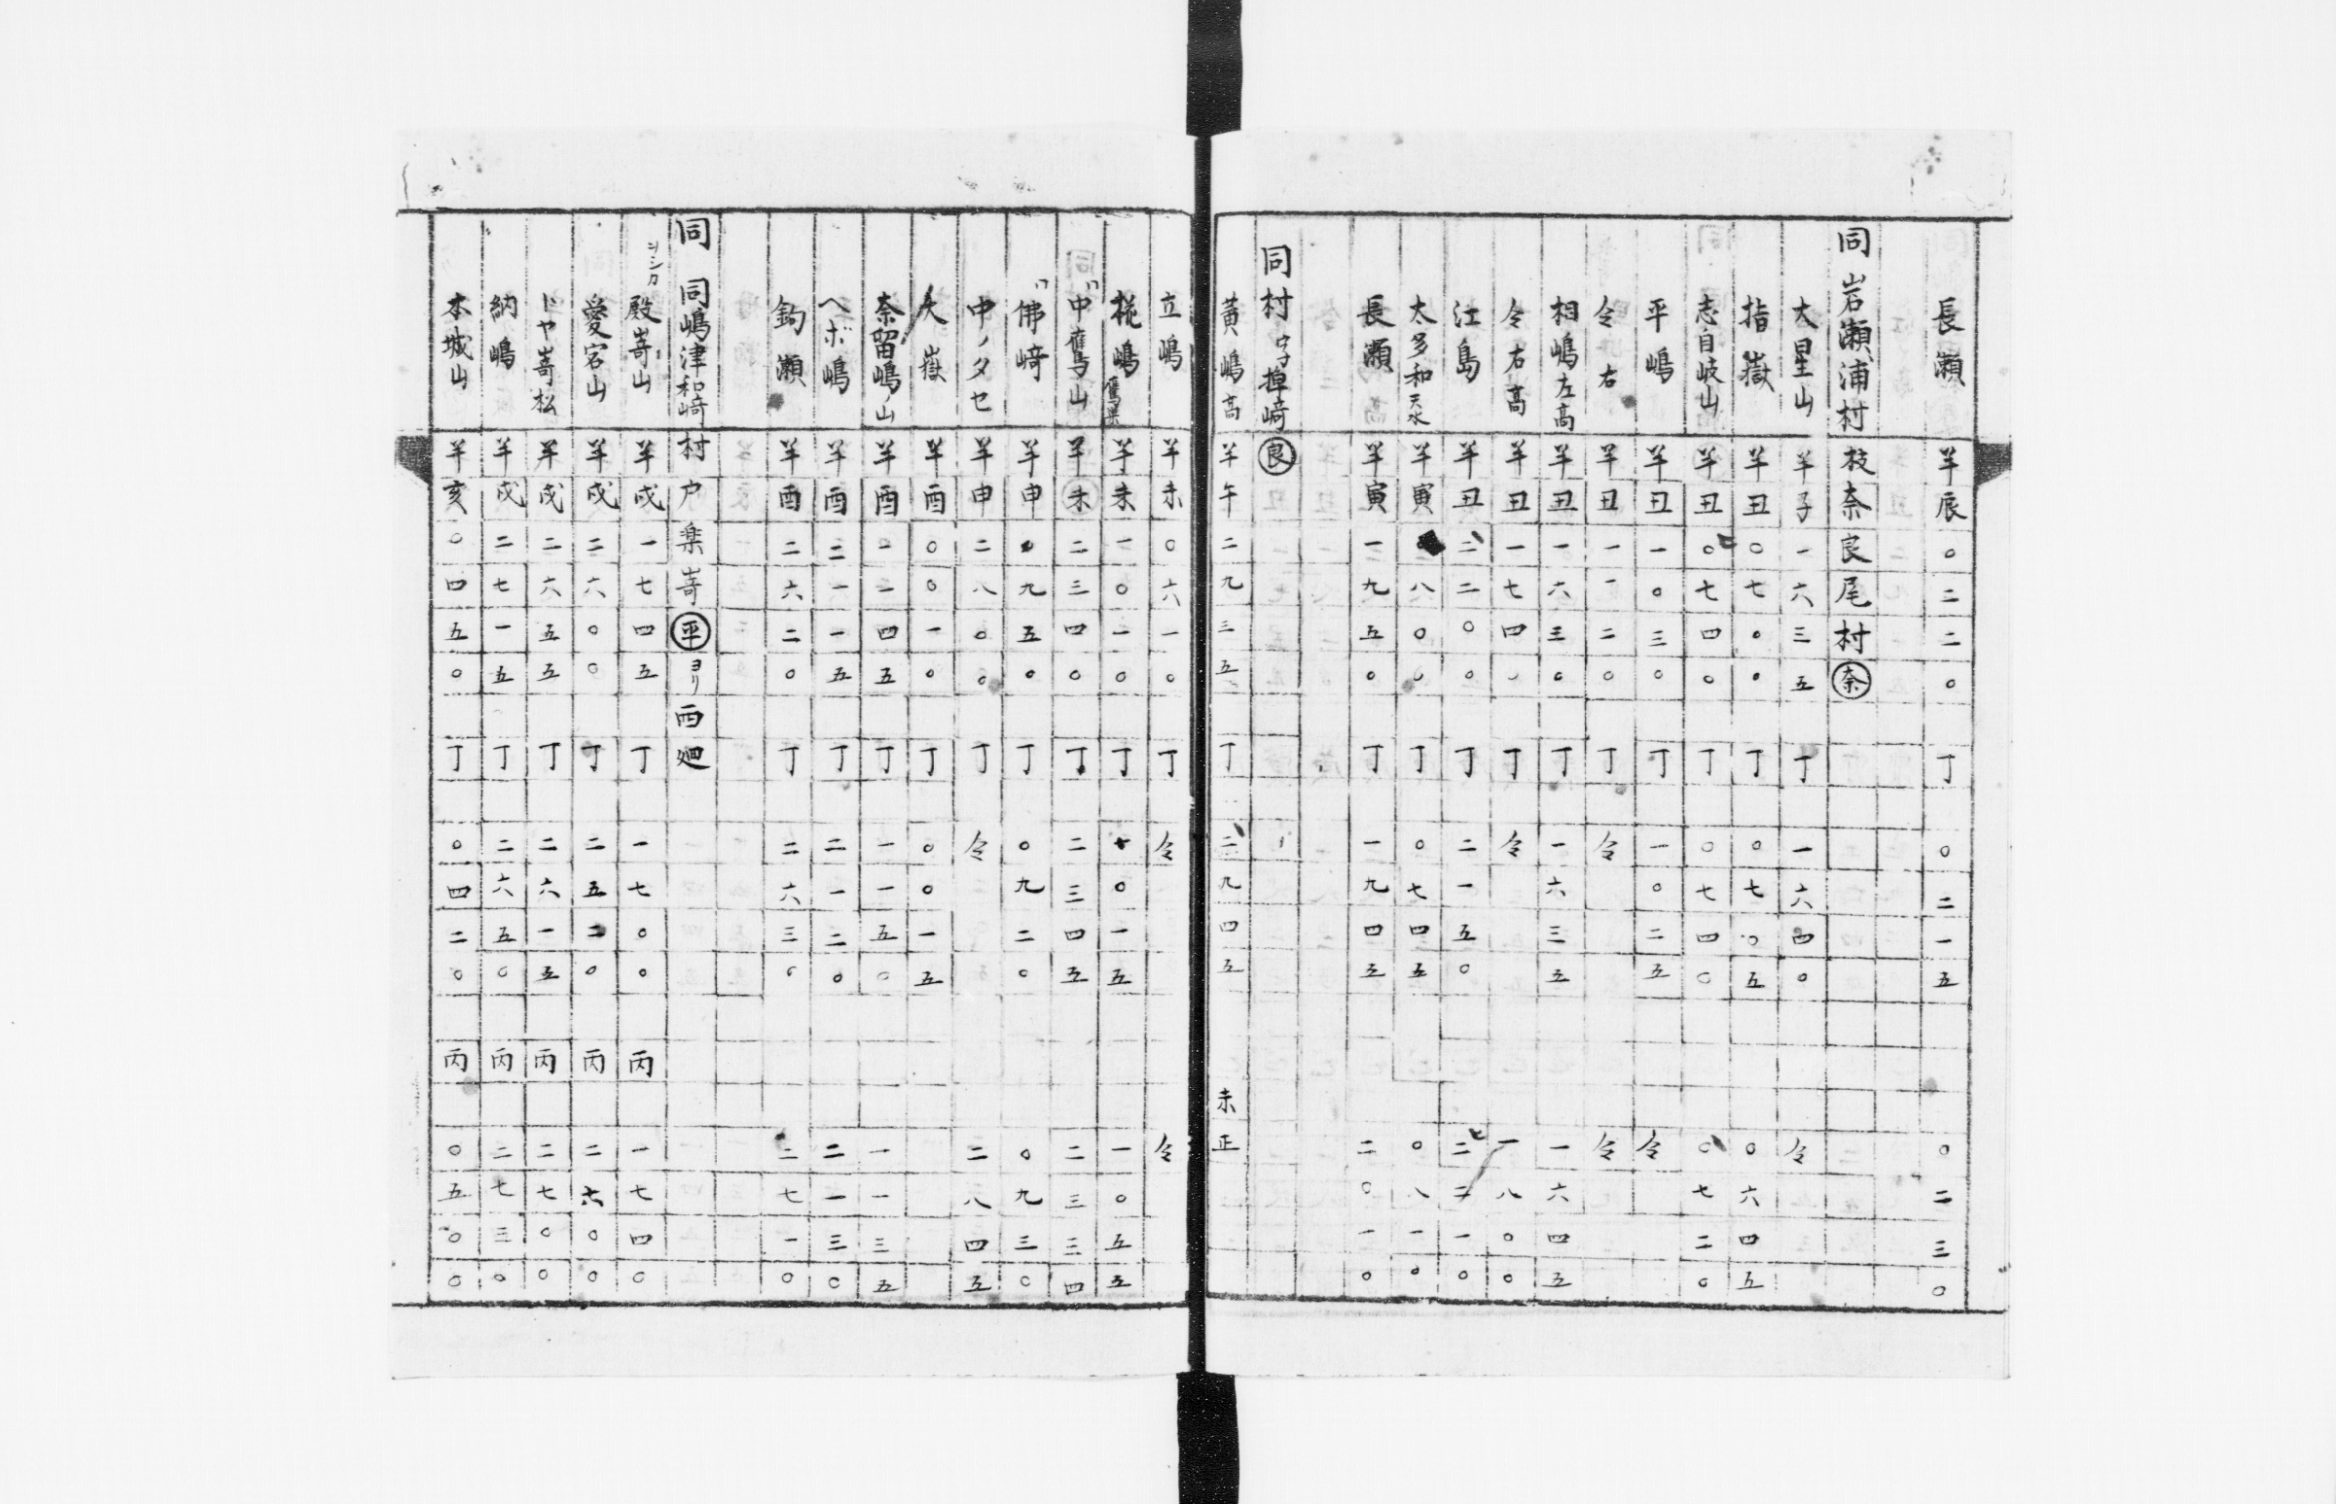 長瀬 羊辰〇二二〇 丁 〇二一五 〇二三〇
同 岩瀬浦村 枝奈良尾村 奈
大星山 羊子一六三五 丁 一六四〇 仝
指嶽 羊丑〇七〇〇 丁 〇七〇五 〇六四五
志自岐山 羊丑〇七四〇 丁 〇七四〇 〇七二〇
平嶋 羊丑一〇三〇 丁 一〇二五 仝
仝右 羊丑一一二〇 丁 仝 仝
相嶋左高 羊丑一六三〇 丁 一六三五 一六四五
仝右高 羊丑一七四〇 丁 仝 一八〇〇
江島 羊丑二二〇〇 丁 二一五〇 二二一〇
太多和天水 羊寅 八〇〇 丁 〇七四五 〇八一〇
長瀬 羊寅一九五〇 丁 一九四五 二〇一〇
同村 字 﨑 良
黄嶋高 羊午二九三五 丁 二九四五 未正
立嶋 羊未〇六一〇 丁 仝 仝
椛嶋 鷹巣 羊未一〇一〇 丁 一〇一五 一〇五五
〃中鷹山 羊未二三四〇 丁 二三四五 二三三四
〃佛﨑 羊申〇九五〇 丁 〇九二〇 〇九三〇
中ノタセ 羊申二八〇〇 丁 仝 二八四五
大嶽 羊酉〇〇一〇 丁 〇〇一五
奈留嶋ノ山 羊酉一一四五 丁 一一五〇 一一三五
ヘボ嶋 羊酉二一一五 丁 二一二〇 二一三〇
釣瀬 羊酉二六二〇 丁 二六三〇 二七一〇
同 同嶋津和﨑村戸楽嵜 平 ヨリ西廻
殿嵜山 シシカ 羊戌一七四五 丁 一七〇〇 丙 一七四〇
愛宕山 羊戌二六〇〇 丁 二五二〇 丙 二六〇〇
ドヤ嵜松 羊戌二六五五 丁 二六一五 丙 二七〇〇
納嶋 羊戌二七一五 丁 二六五〇 丙 二七三〇
本城山 羊亥〇四五〇 丁 〇四二〇 丙 〇五〇〇